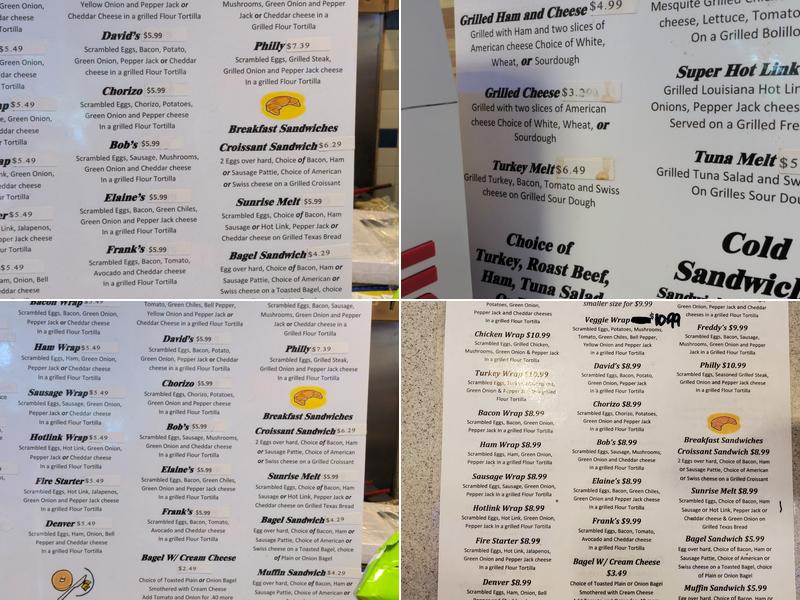 Yellow Onion and Pepper Jack or
Cheddar Cheese in a grilled Flour Tortilla
David's $5.99
Scrambled Eggs, Bacon, Potato,
Green Onion, Pepper Jack or Cheddar
cheese in a grilled Flour Tortilla
Chorizo $5.99
Scrambled Eggs, Chorizo, Potatoes,
Green Onion and Pepper cheese
in a grilled Flour Tortilla
Bob's $5.99
Scrambled Eggs, Sausage, Mushrooms,
Green Onion and Cheddar cheese
In a grilled Flour Tortilla
Elaine's $5.99
Scrambled Eggs, Bacon, Green Chiles,
Green Onion and Pepper Jack cheese
In a grilled Flour Tortilla
Frank's $5.99
Scrambled Eggs, Bacon, Tomato,
Avocado and Cheddar cheese
in a grilled Flour Tortilla
$5.49
Green Onion,
cheese
Flour Tortilla
$5.49
$5.49
$5.49
Link, Jalapenos,
$5.49
Ham, Onion, Bell
Mushrooms, Green Onion and Pepper
Jack or Cheddar cheese in a
grilled Flour Tortilla
Philly $7.39
Scrambled Eggs, Grilled Steak,
Grilled Onion and Pepper Jack cheese
In a grilled Flour Tortilla
Breakfast Sandwiches
Croissant Sandwich $6.29
2 Eggs over hard, Choice of Bacon, Ham
or Sausage Pattie, Choice of American
or Swiss cheese on a Grilled Croissant
Sunrise Melt $5.99
Scrambled Eggs, Choice of Bacon, Ham
Sausage or Hot Link, Pepper Jack or
Cheddar cheese on Grilled Texas Bread
Bagel Sandwich $4.29
Egg over hard, Choice of Bacon, Ham or
Sausage Pattie, Choice of American or
Swiss cheese on a Toasted Bagel, choice
Grilled Ham and Cheese $4.99
Grilled with Ham and two slices of
American cheese Choice of White,
Wheat, or Sourdough
Grilled Cheese
Grilled with two slices of American
cheese Choice of White, Wheat, or
Sourdough
Turkey Melt $6.49
Grilled Turkey, Bacon, Tomato and Swiss
cheese on Grilled Sour Dough
Choice of
Turkey, Roast Beef,
Ham, Tuna Salad
Mesquite Grilled
cheese, Lettuce, Tomato
On a Grilled Bolillo
Super Hot Link
Grilled Louisiana Hot Lin
Onions, Pepper Jack chees
Served on a Grilled Fre
Tuna Melt $5
Grilled Tuna Salad and Sw
On Grilles Sour Dou
Cold
Sandwich
Bacon Wrap
Scrambled Eggs, Bacon, Green Onion,
Pepper Jack or Cheddar cheese
In a grilled Flour Tortilla
Ham Wrap $5.49
Scrambled Eggs, Ham, Green Onion,
Pepper Jack or Cheddar cheese
In a grilled Flour Tortilla
Sausage Wrap $5.49
Scrambled Eggs, Sausage, Green Onion,
Pepper Jack or Cheddar cheese
In a grilled Flour Tortilla
Hotlink Wrap $5.49
Scrambled Eggs, Hot Link, Green Onion,
Pepper Jack or Cheddar cheese
In a grilled Flour Tortilla
Fire Starter $5.49
Scrambled Eggs, Hot Link, Jalapenos,
Green Onion and Pepper Jack cheese
in a grilled Flour Tortilla
Denver $5.49
Scrambled Eggs, Ham, Onion, Bell
Pepper and Cheddar cheese
In a grilled Flour Tortilla
Tomato, Green Chiles, Bell Pepper,
Yellow Onion and Pepper Jack or
Cheddar Cheese in a grilled Flour Tortilla
David's $5.99
Scrambled Eggs, Bacon, Potato,
Green Onion, Pepper Jack or Cheddar
cheese in a grilled Flour Tortilla
Chorizo $5.99
Scrambled Eggs, Chorizo, Potatoes,
Green Onion and Pepper cheese
in a grilled Flour Tortilla
Bob's $5.99
Scrambled Eggs, Sausage, Mushrooms,
Green Onion and Cheddar cheese
In a grilled Flour Tortilla
Elaine's $5.99
Scrambled Eggs, Bacon, Green Chiles,
Green Onion and Pepper Jack cheese
In a grilled Flour Tortilla
Frank's $5.99
Scrambled Eggs, Bacon, Tomato,
Avocado and Cheddar cheese
in a grilled Flour Tortilla
Bagel W/ Cream Cheese
$2.49
Choice of Toasted Plain or Onion Bagel
Smothered with Cream Cheese
Add Tomato and Onion for .40 more
Scrambled Eggs, Bacon, Sausage,
Mushrooms, Green Onion and Pepper
Jack or Cheddar cheese in a
grilled Flour Tortilla
Philly $7.39
Scrambled Eggs, Grilled Steak,
Grilled Onion and Pepper Jack cheese
In a grilled Flour Tortilla
Breakfast Sandwiches
Croissant Sandwich $6.29
2 Eggs over hard, Choice of Bacon, Ham
or Sausage Pattie, Choice of American
or Swiss cheese on a Grilled Croissant
Sunrise Melt $5.99
Scrambled Eggs, Choice of Bacon, Ham
Sausage or Hot Link, Pepper Jack or
Cheddar cheese on Grilled Texas Bread
Bagel Sandwich $4.29
Egg over hard, Choice of Bacon, Ham or
Sausage Pattie, Choice of American or
Swiss cheese on a Toasted Bagel, choice
of Plain or Onion Bagel
Muffin Sandwich $4.29
Egg over hard, Choice of Bacon, Ham or
Sausage Pattie, Choice of American or
Potatoes, Green Onion,
Pepper Jack cheese
in a grilled Flour Tortilla
Chicken Wrap $10.99
Scrambled Eggs, Grilled Chicken,
Mushrooms, Green Onion & Pepper Jack
in a grilled Flour Tortilla
Turkey Wrap $10.99
Flour Tortilla
Bacon Wrap $8.99
Scrambled Eggs, Bacon, Green Onion,
Pepper Jack in a grilled Flour Tortilla
Ham Wrap $8.99
Scrambled Eggs, Ham, Green Onion,
Pepper Jack in a grilled Flour Tortilla
Sausage Wrap $8.99
Scrambled Eggs, Sausage, Green Onion,
Pepper Jack in a grilled Flour Tortilla
Hotlink Wrap $8.99
Scrambled Eggs, Hot Link, Green Onion,
Pepper Jack in a grilled Flour Tortilla
Fire Starter $8.99
Scrambled Eggs, Hot Link, Jalapenos,
Green Onion and Pepper Jack cheese
in a grilled Flour Tortilla
Denver $8.99
Scrambled Eggs, Ham, Onion, Bell
smaller size for $9.99
Veggie Wrap $10.99
Scrambled Eggs, Potatoes, Mushrooms,
Tomato, Green Chiles, Bell Pepper,
Yellow Onion and Pepper Jack
in a grilled Flour Tortilla
David's $8.99
Scrambled Eggs, Bacon, Potato,
Green Onion, Pepper Jack
in a grilled Flour Tortilla
Chorizo $8.99
Scrambled Eggs, Chorizo, Potatoes,
Green Onion and Pepper Jack
in a grilled Flour Tortilla
Bob's $8.99
Scrambled Eggs, Sausage, Mushrooms,
Green Onion and Cheddar cheese
in a grilled Flour Tortilla
Elaine's $8.99
Scrambled Eggs, Bacon, Green Chiles,
Green Onion and Pepper Jack cheese
in a grilled Flour Tortilla
Frank's $9.99
Scrambled Eggs, Bacon, Tomato,
Avocado and Cheddar cheese
in a grilled Flour Tortilla
Bagel W/ Cream Cheese
$3.49
Choice of Toasted Plain or Onion Bagel
Smothered with Cream Cheese
Add Tomato and Onion for .50 more
Pepper Jack and Cheddar
cheeses in a grilled Flour Tortilla
Freddy's $9.99
Scrambled Eggs, Bacon, Sausage,
Mushrooms, Green Onion and Pepper
Jack in a grilled Flour Tortilla
Philly $10.99
Scrambled Eggs, Seasoned Grilled Steak,
Grilled Onion and Pepper Jack cheese
in a grilled Flour Tortilla
Breakfast Sandwiches
Croissant Sandwich $8.99
2 Eggs over hard, Choice of Bacon, Ham
or Sausage Pattie, Choice of American
or Swiss cheese on a Grilled Croissant
Sunrise Melt $8.99
Scrambled Eggs, Choice of Bacon, Ham
Sausage or Hot Link, Pepper Jack or
Cheddar cheese & Green Onion on
Grilled Texas Bread
Bagel Sandwich $5.99
Egg over hard, Choice of Bacon, Ham or
Sausage Pattie, Choice of American or
Swiss cheese on a Toasted Bagel, choice
of Plain or Onion Bagel
Muffin Sandwich $5.99
Egg over hard, Choice of Bacon, Ham or